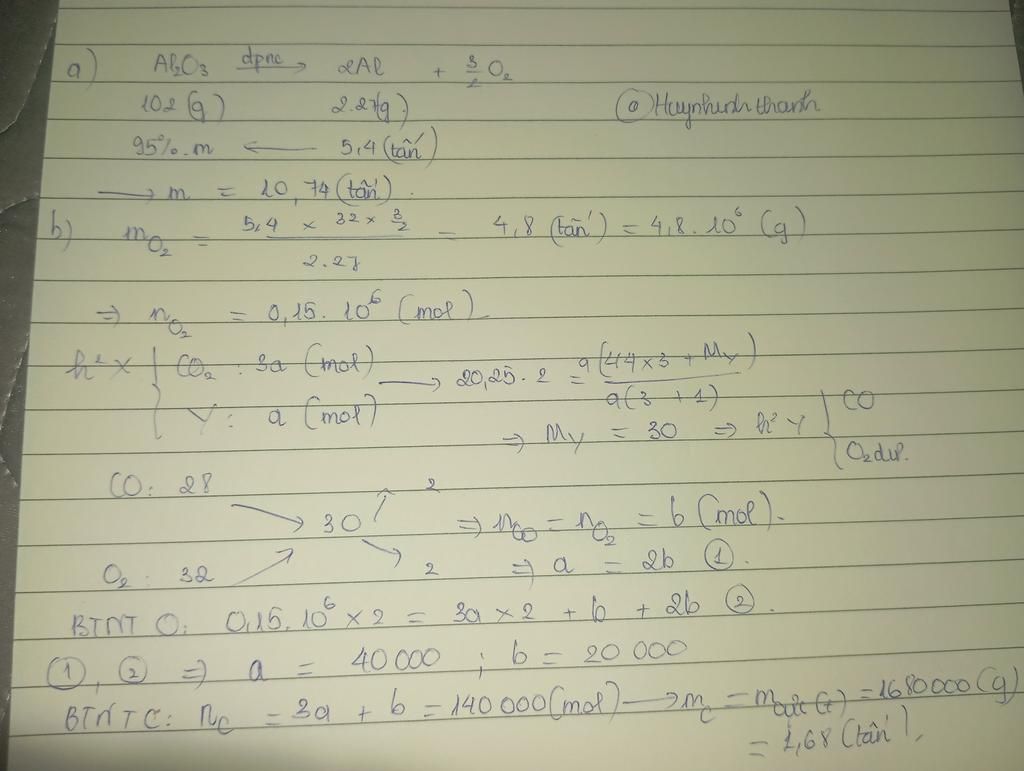 a) Al₂O₃ →(dpnc) 2Al + 3/2 O₂
102 (g) 2.27(g) @Huynhunhthanh
95%.m ← 5,4 (tấn)
→ m = 10,74 (tấn).
b) m_O₂ = (5,4 × 32 × 3/2) / 2.27 = 4,8 (tấn) = 4,8.10⁶ (g)
⇒ n_O₂ = 0,15.10⁶ (mol)
h² X { CO₂ : 3a (mol) → 20,25.2 = a(44×3 + M_Y) / a(3 + 1)
Y : a (mol) ⇒ M_Y = 30 ⇒ h² Y { CO
O₂ dư.
CO: 28 2
30 ⇒ n_CO = n_O₂ = b (mol).
O₂ : 32 2 ⇒ a = 2b ①.
BTNT O: 0,15.10⁶ × 2 = 3a × 2 + b + 2b ②.
①, ② ⇒ a = 40 000 ; b = 20 000
BTNT C: n_C = 3a + b = 140 000 (mol) → m_C = m_cực (+) = 1680 000 (g)
= 1,68 (tấn).